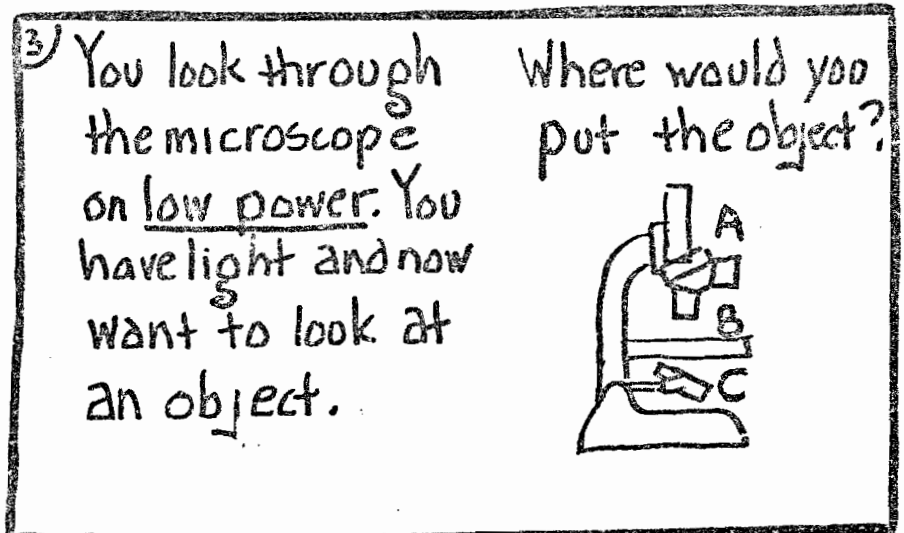 3) You look through
the microscope
on low power. You
have light and now
want to look at
an object.
Where would you
put the object?
A
B
C